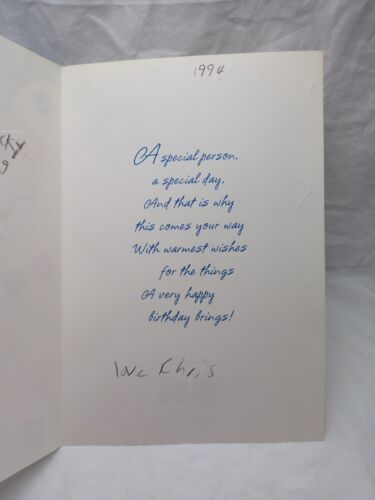 1994
A special person,
a special day,
And that is why
this comes your way
With warmest wishes
for the things
A very happy
birthday brings!
love Chris